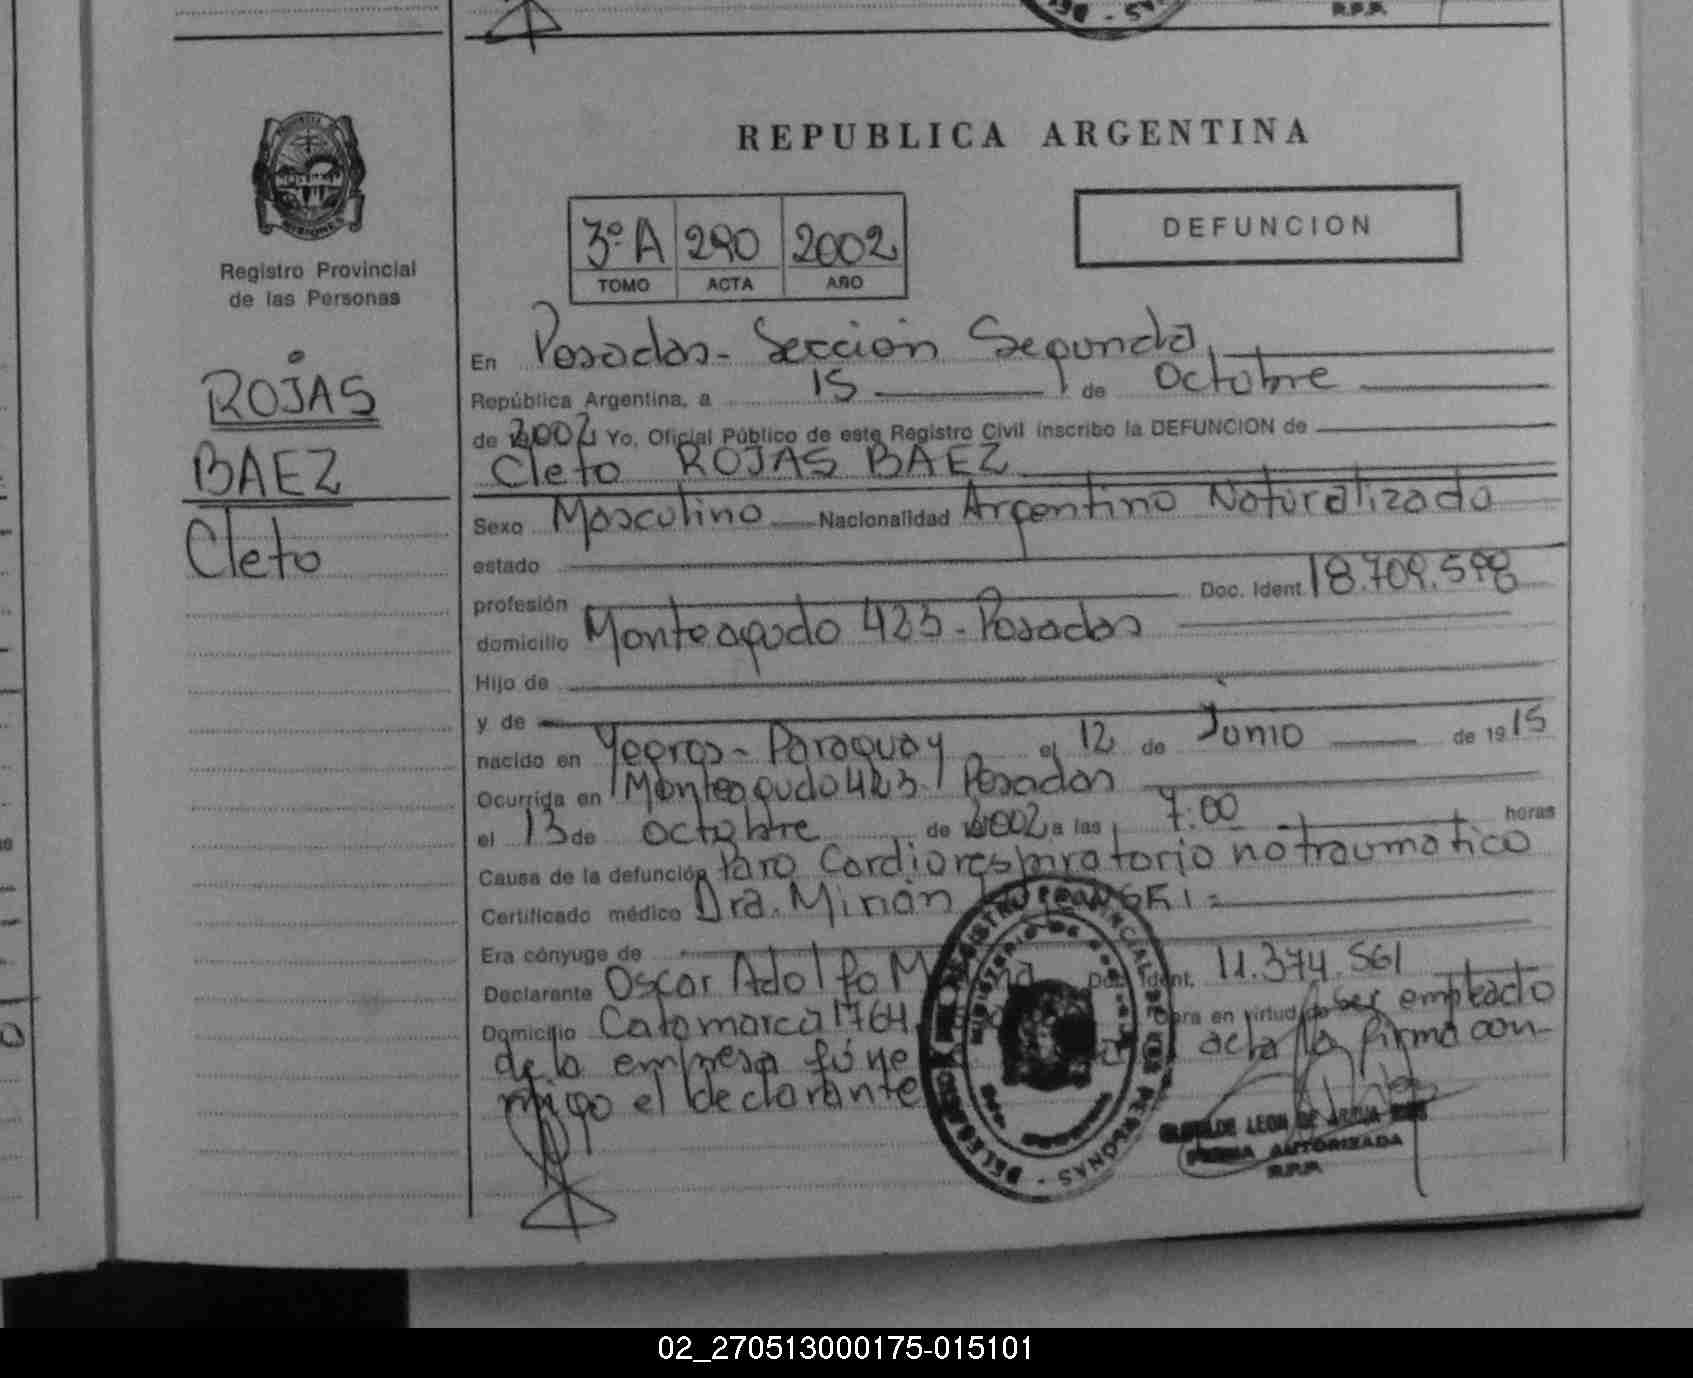 R.P.P.
REPUBLICA ARGENTINA
Registro Provincial
de las Personas
3º A 290 2002
TOMO ACTA AÑO
DEFUNCION
ROJAS
BAEZ
Cleto
En Posadas - Sección Segunda
República Argentina, a 15 de Octubre
de 2002 Yo, Oficial Público de este Registro Civil inscribo la DEFUNCION de
Cleto ROJAS BAEZ
Sexo Masculino Nacionalidad Argentino Naturalizado
estado
profesión Doc. Ident. 18.709.598
domicilio Monteagudo 423 - Posadas
Hijo de
y de
nacido en Yegros - Paraguay el 12 de Junio de 1915
Ocurrida en Monteagudo 423 Posadas
el 13 de octubre de 2002 a las 7:00 horas
Causa de la defunción Paro Cardiorespiratorio no traumatico
Certificado médico Dra. Mirian
Era cónyuge de
Declarante Oscar Adolfo Doc. Ident. 11.374.561
Domicilio Catamarca 1764 Obra en virtud de ser empleado
de la empresa fúne acta la firma con-
migo el declarante
REGISTRO PROVINCIAL DE LAS PERSONAS
MINISTERIO DE
LEON DE
FIRMA AUTORIZADA
R.P.P.
02_270513000175-015101